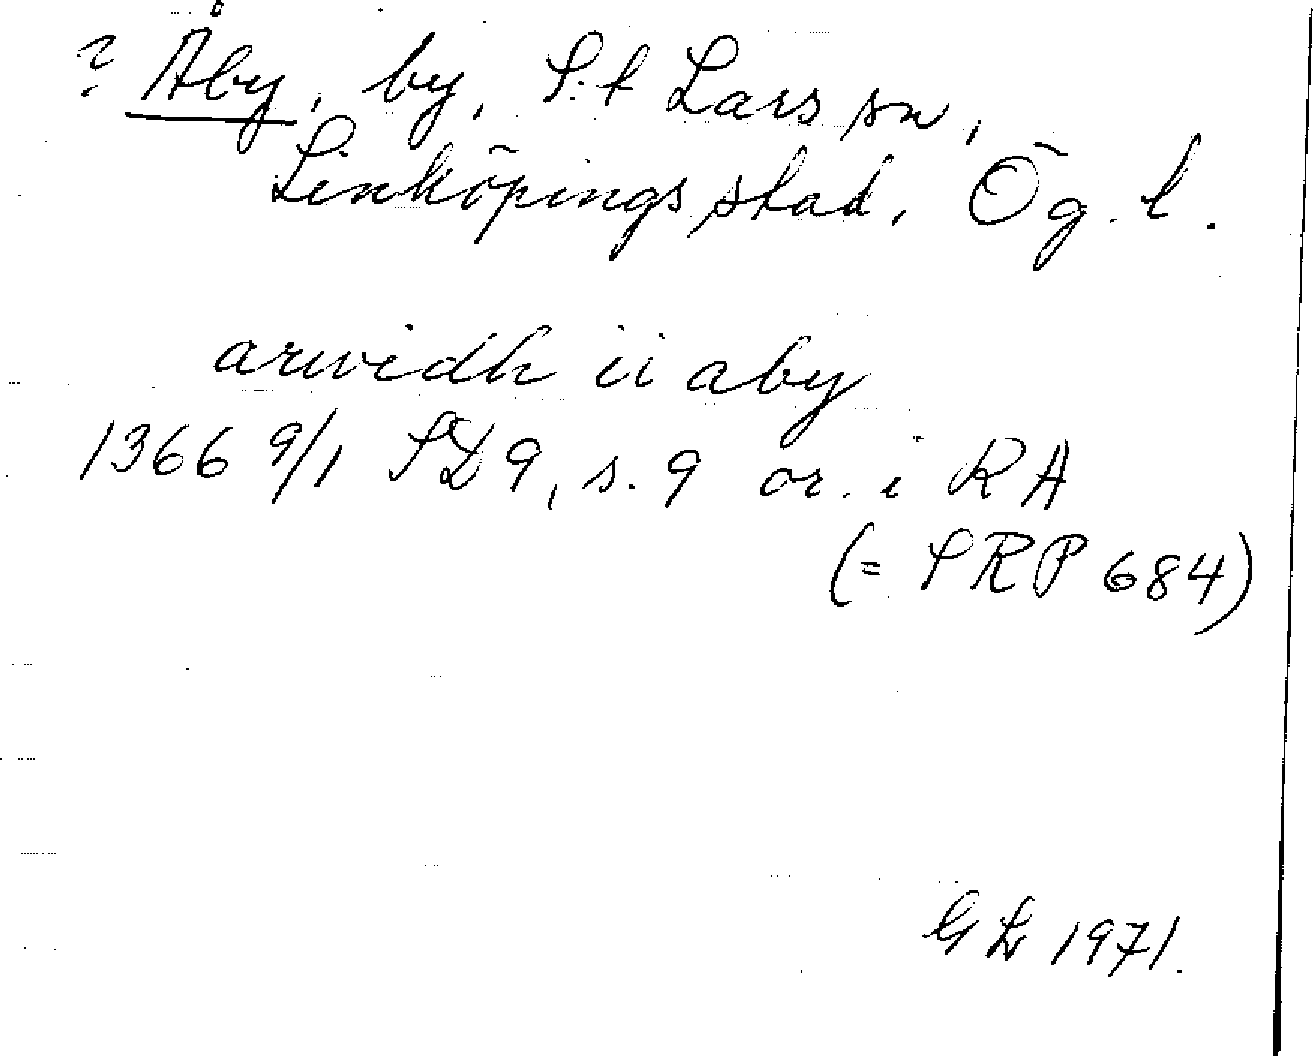 ? Åby, by, S:t Lars sn,
Linköpings stad, Ög. l.
arvidh ii aby
1366 9/1 SD 9, s. 9 or. i RA
(= SRP 684)
1971.